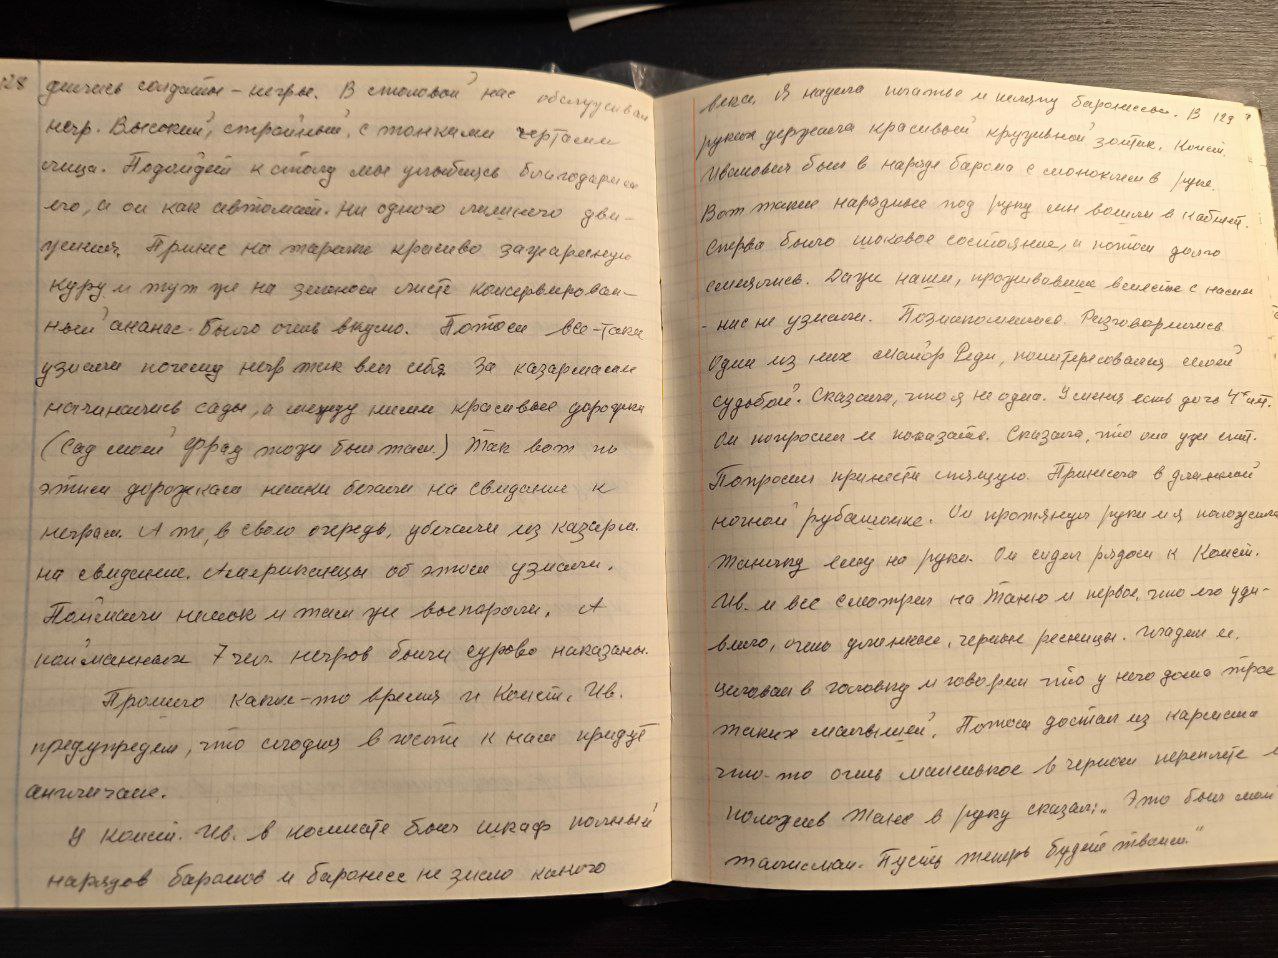 128
дились солдаты - негры. В столовой нас обслуживал
негр. Высокий, стройный, с тонкими чертами
лица. Подойдет к столу мы улыбаясь благодарили
его, а он как автомат. Ни одного лишнего дви-
жения. Принес на тарелке красиво зажаренную
куру и тут же на зеленом листе консервирован-
ный ананас. Было очень вкусно. Потом все-таки
узнали почему негр так вел себя. За казармами
начинались сады, а между ними красивые дорожки
(сад моей фрад тоже был там) Так вот по
этим дорожкам немки бегали на свидание к
неграм. А те, в свою очередь, убегали из казарм
на свидание. Американцы об этом узнали.
Поймали немок и там же выпороли. А
пойманных 7 чел. негров были сурово наказаны.
Прошло какое-то время и Конст. Ив.
предупредил, что сегодня в гости к нам придут
англичане.
У Конст. Ив. в комнате был шкаф полный
нарядов баронов и баронесс не знаю какого
129
века. Я надела платье и шляпу баронессы. В
руках держала красивый кружевной зонтик. Конст.
Иванович был в наряде барона с моноклем в руке.
Вот такие нарядные под руку мы вошли в кабинет.
Сперва было шоковое состояние, а потом долго
смеялись. Даже наши, проживавшие вместе с нами
- нас не узнали. Познакомились. Разговорились
Один из них майор Реди, поинтересовался моей
судьбой. Сказала, что я не одна. У меня есть дочь 4х лет.
Он попросил и показать. Сказала, что она уже спит.
Попросил принести спящую. Принесла в длинной
ночной рубашонке. Он протянул руки и я положила
Танечку ему на руки. Он сидел рядом к Конст.
Ив. и все смотрел на Таню и первое, что его уди-
вило, очень длинные, черные ресницы. Гладил ее,
целовал в головку и говорил что у него дома трое
таких малышей. Потом достал из кармана
что-то очень маленькое в черном переплете и
положив Тане в руку сказал: „Это был мой
талисман. Пусть теперь будет твоим."